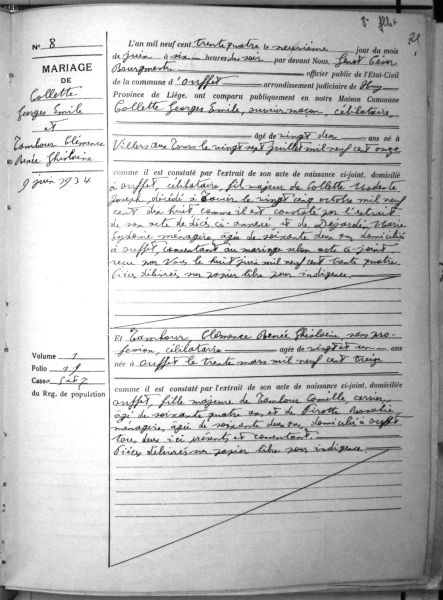 21
N° 8
MARIAGE
DE
Collette
Georges Emile
et
Tambour Clémence
Renée Ghislaine
9 juin 1934
Volume 1
Folio 19
Cases 5 à 7
du Reg. de population
L'an mil neuf cent trente quatre le neuvième jour du mois
de juin à six heures du soir par devant Nous,
Bourgmestre officier public de l'Etat-Civil
de la commune d'Ouffet arrondissement judiciaire de Huy
Province de Liége, ont comparu publiquement en notre Maison Commune
Collette Georges Emile, ouvrier maçon, célibataire,
âgé de vingt deux ans né à
Villers aux Tours le vingt sept juillet mil neuf cent onze
comme il est constaté par l'extrait de son acte de naissance ci-joint, domicilié
à Ouffet, célibataire, fils majeur de Collette Modeste
Joseph, décédé à le vingt cinq octobre mil neuf
cent dix huit comme il est constaté par l'extrait
de son acte de décès ci-annexé et de Marie
ménagère, âgée de soixante deux ans domiciliée
à Ouffet, consentant au mariage selon acte ci-joint
reçu par Nous le huit juin mil neuf cent trente quatre.
Pièces délivrées sur papier libre pour indigence.
Et Tambour, Clémence Renée Ghislaine, sans pro-
fession, célibataire âgée de vingt et un ans
née à Ouffet le trente mars mil neuf cent treize
comme il est constaté par l'extrait de son acte de naissance ci-joint, domiciliée
Ouffet, fille majeure de Tambour Camille, carrier,
âgé de soixante quatre ans et de Pirotte Rosalie
ménagère, âgée de soixante deux ans, domiciliés à Ouffet
tous deux ici présents et consentant.
Pièces délivrées sur papier libre pour indigence.